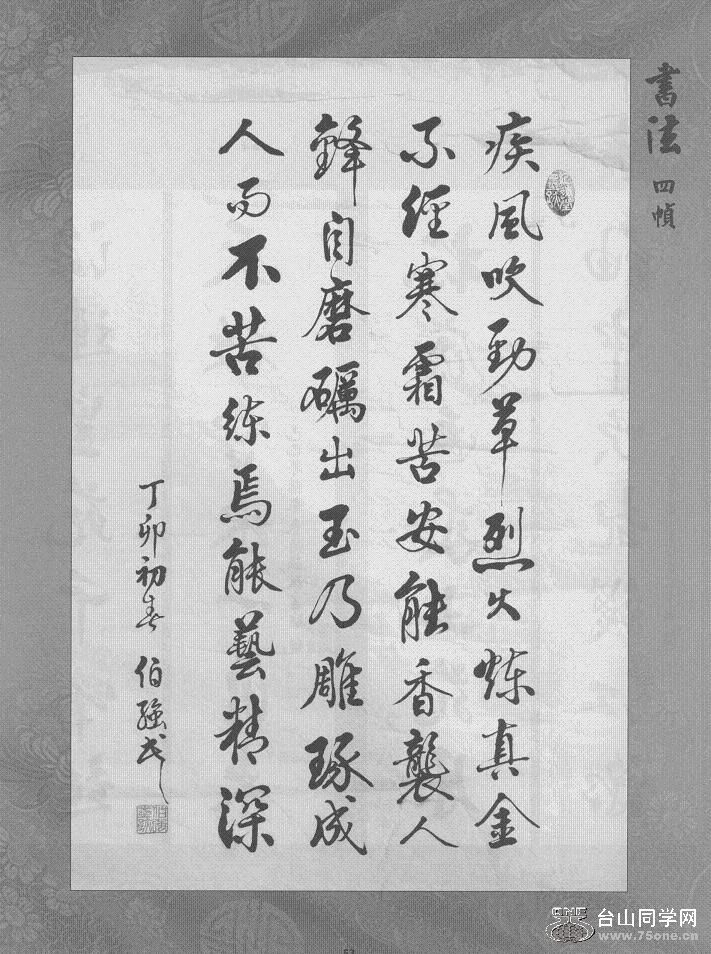 書法 四幀
疾風吹勁草烈火炼真金
不經寒霜苦安能香襲人
鋒自磨礪出玉乃雕琢成
人而不苦练焉能藝精深
丁卯初春 伯强书
台山同学网
www.75one.cn
53